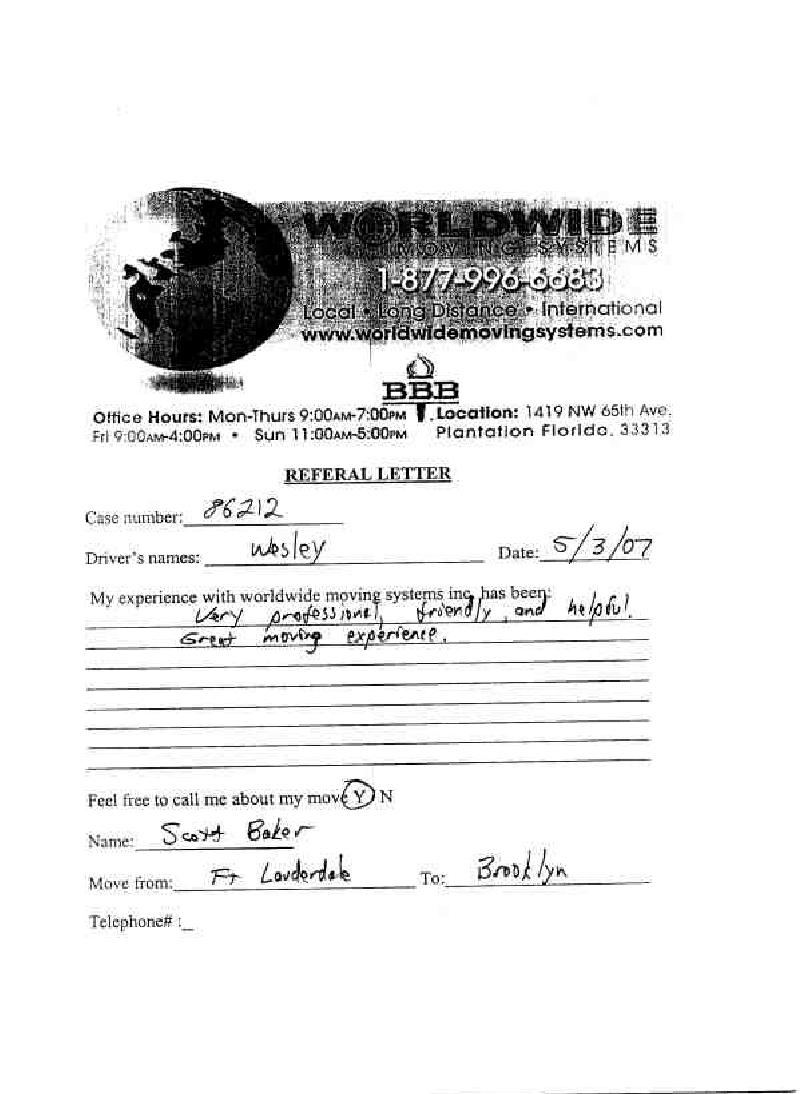 WORLDWIDE
MOVING SYSTEMS
1-877-996-6683
Local • Long Distance • International
www.worldwidemovingsystems.com
BBB
Office Hours: Mon-Thurs 9:00AM-7:00PM
Fri 9:00AM-4:00PM • Sun 11:00AM-5:00PM
Location: 1419 NW 65th Ave.
Plantation Florida. 33313
REFERAL LETTER
Case number: 86212
Driver's names: Wesley Date: 5/3/07
My experience with worldwide moving systems inc, has been:
Very professional, friendly, and helpful.
Great moving experience.
Feel free to call me about my move Y N
Name: Scott Baker
Move from: Ft Lauderdale To: Brooklyn
Telephone# :_